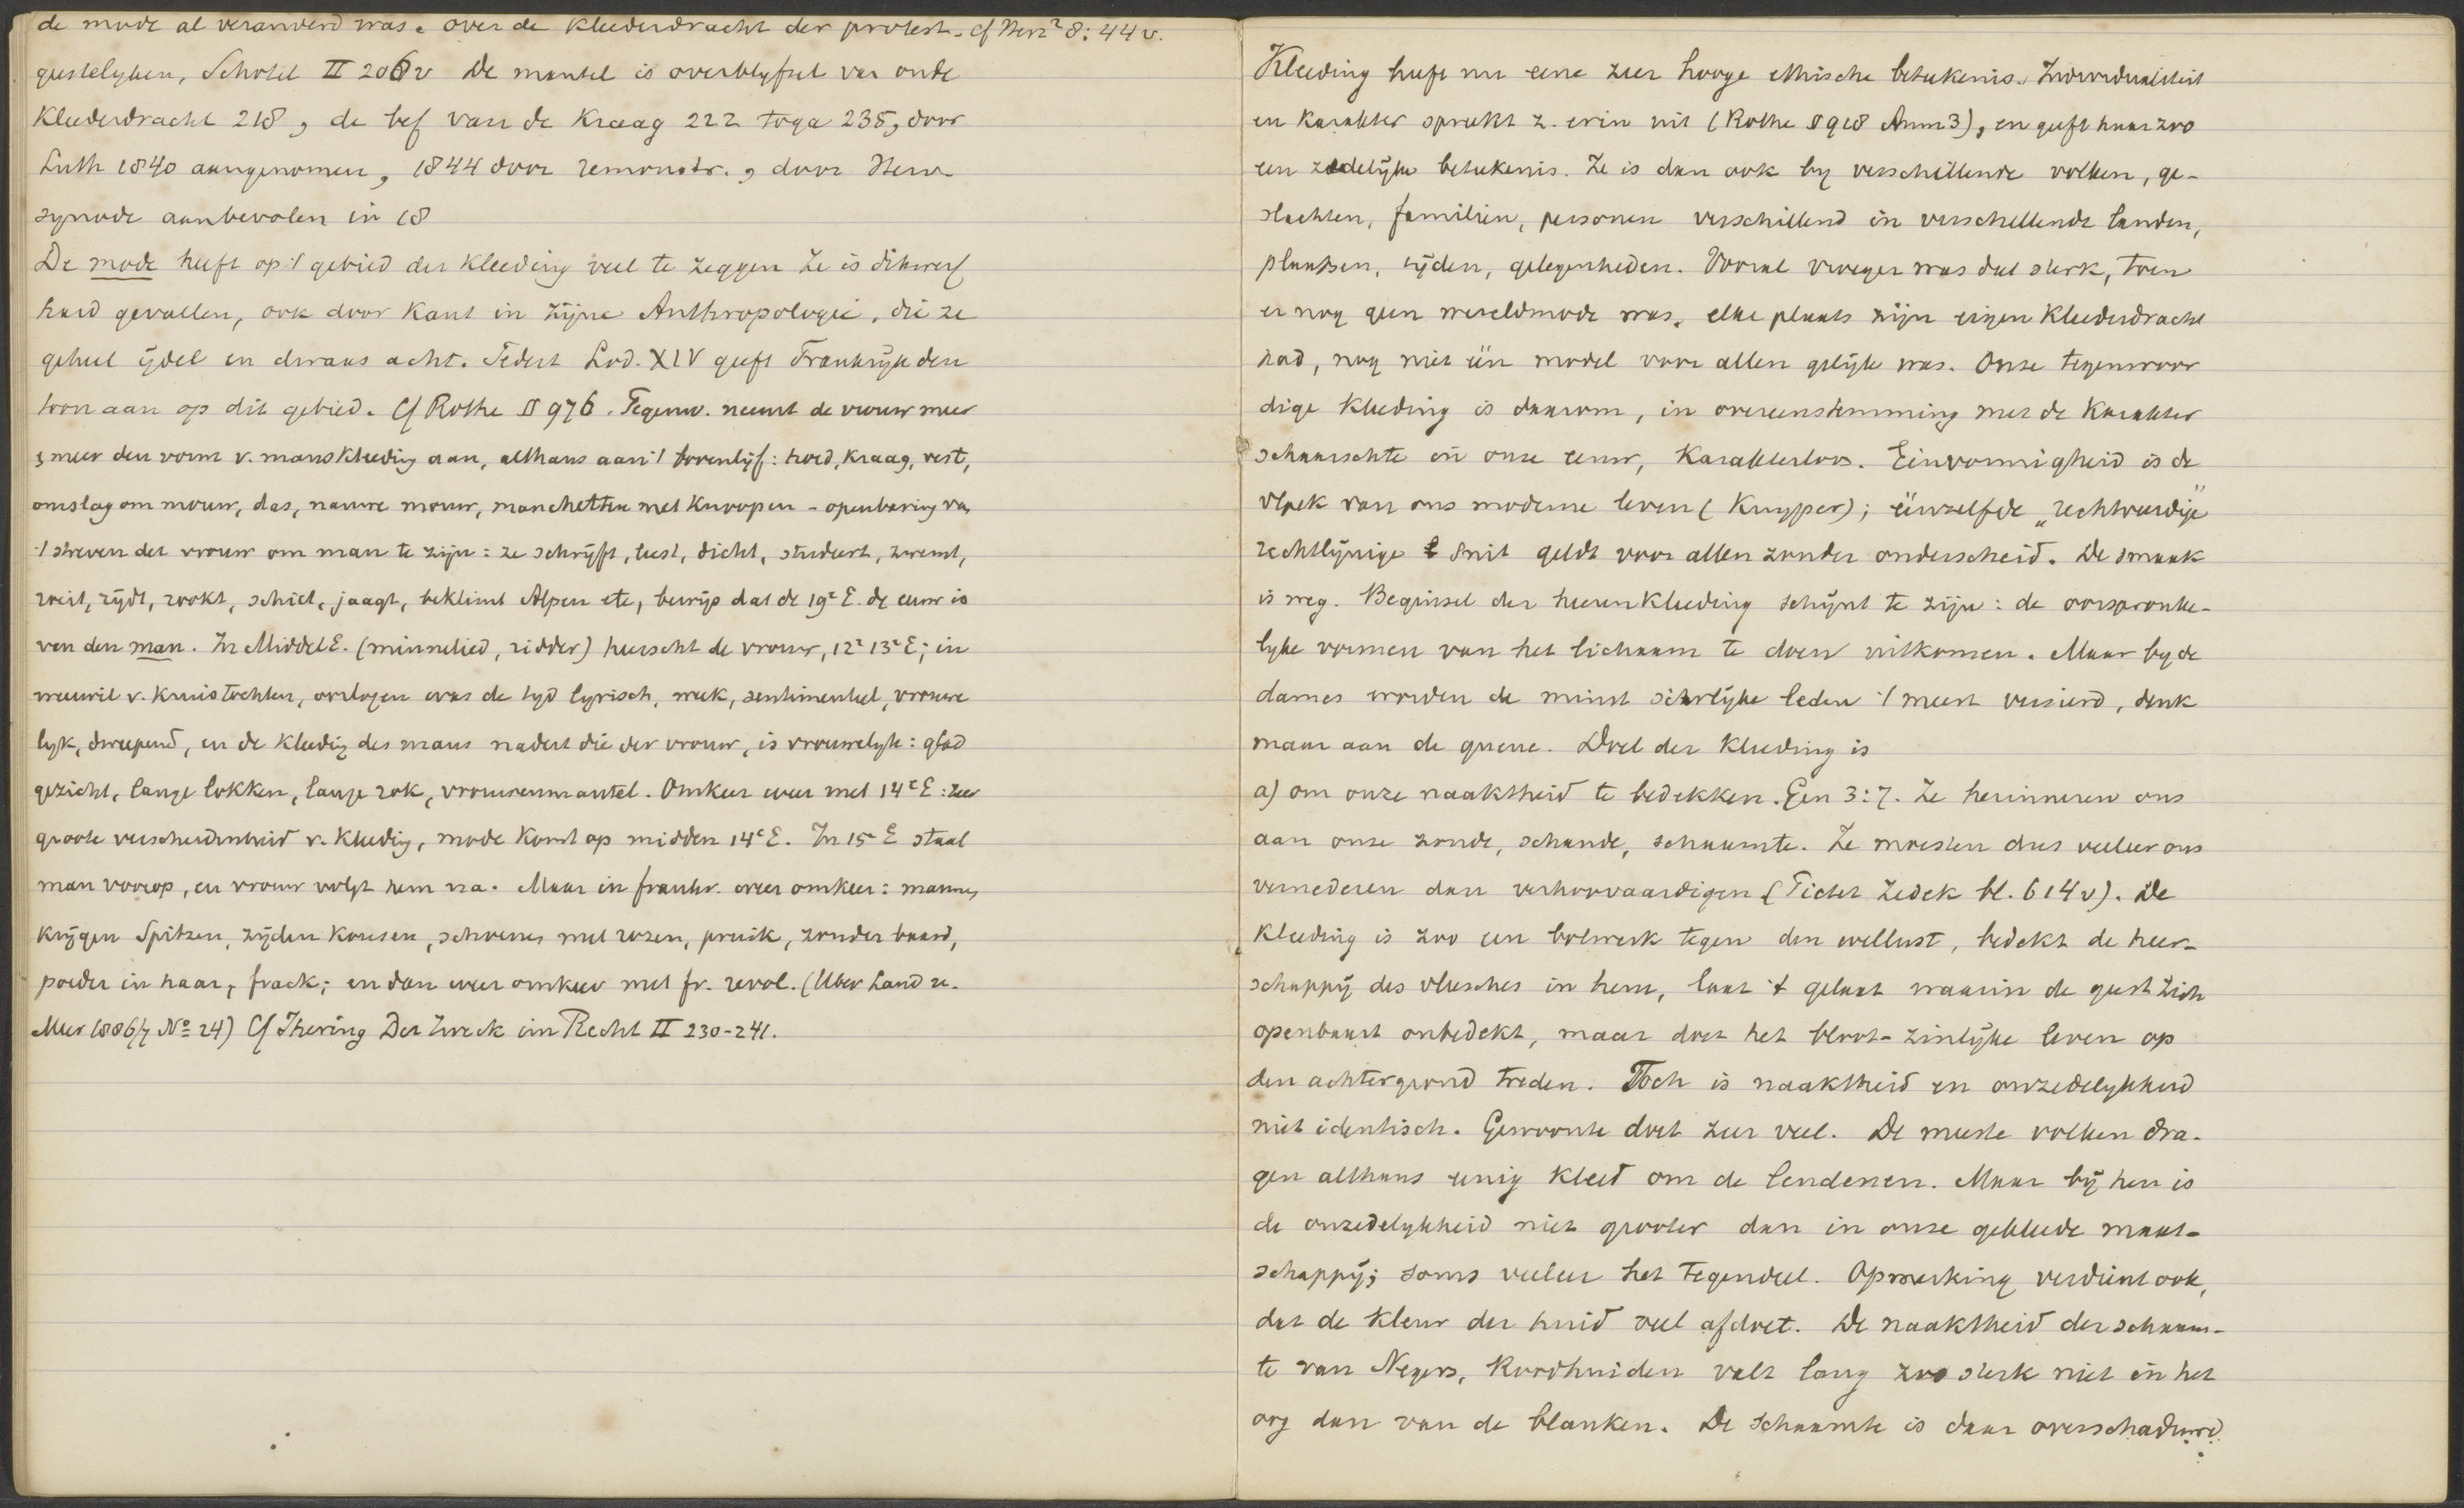 de mode al veranderd was. over de kleederdracht der protest. Cf Herz² 8:44v.
geestelyken, Schotel II 206v De mantel is overblyfsel van oude
Kleederdracht 218, de bef van de Kraag 222 toga 235, door
Luth 1840 aangenomen, 1844 door remonstr., door Herv.
synode aanbevolen in 18
De mode heeft op 't gebied der Kleeding veel te zeggen Ze is dikwerf
hard gevallen, ook door Kant in zijne Anthropologie, die ze
geheel ijdel en dwaas acht. Sedert Lod. XIV geeft Frankrijk den
toon aan op dit gebied. Cf Rothe § 976. Tegenw. neemt de vrouw meer
& meer den vorm v. manskleeding aan, althans aan 't bovenlijf: hoed, kraag, vest,
omslag om mouw, das, nauwe mouw, manchetten met knoopen - openbaring van
't streven der vrouw om man te zijn: ze schrijft, leest, dicht, studeert, zwemt,
reist, rijdt, rookt, schiet, jaagt, beklimt Alpen etc, bewijs dat de 19e E. de eeuw is
van den man. In MiddelE. (minnelied, ridder) heerscht de vrouw, 12e 13e E; in
weerwil v. Kruistochten, oorlogen was de tyd lyrisch, week, sentimenteel, vrouwe
lyk, dweepend, en de kleedig des mans nadert die der vrouw, is vrouwelyk: glad
gezicht, lange lokken, lange rok, vrouwenmantel. Omkeer weer met 14e E: zeer
groote verscheidenheid v. Kleedig, mode komt op midden 14e E. In 15e E staat
man voorop, en vrouw volgt hem na. Maar in frankr. weer omkeer: mannen
krijgen Spitzen, zijden kousen, schoenen met rozen, pruik, zonder baard,
poeder in haar, frack; en dan weer omkeer met fr. revol. (Uber Land u.
Meer 1886/7 No 24) Cf Ihering Der Zweck im Recht II 230-241.
Kleeding heeft nu eene zeer hooge ethische beteekenis. Individualiteit
en karakter spreekt z. erin uit (Rothe § 918 Anm 3), en geeft haar zoo
een zedelijke beteekenis. Ze is dan ook by verschillende volken, ge-
slachten, familien, personen verschillend in verschillende landen,
plaatsen, tijden, gelegenheden. Vooral vroeger was dat sterk, toen
er nog geen wereldmode was, elke plaats zijn eigen kleederdracht
had, nog niet één model voor allen gelijk was. Onze tegenwoor
dige kleeding is daarom, in overeenstemming met de karakter
schaarschte in onze eeuw, karakterloos. Eenvormigheid is de
vloek van ons moderne leven (Kuyper); éénzelfde „rechtvaardige"
rechtlijnige snit geldt voor allen zonder onderscheid. De smaak
is weg. Beginsel der heerenkleeding schijnt te zijn: de oorspronke-
lyke vormen van het lichaam te doen uitkomen. Maar by de
dames worden de minst sierlijke leden 't meest versierd, denk
maar aan de queue. Doel der kleeding is
a) om onze naaktheid te bedekken. Gen 3:7. Ze herinneren ons
aan onze zonde, schande, schaamte. Ze moesten dus veeleer ons
vernederen dan verhoovaardigen (Pictet Zedek bl. 614v). De
kleeding is zoo een bolwerk tegen den wellust, bedekt de heer-
schappij des vleesches in hem, laat 't gelaat waarin de geest zich
openbaart onbedekt, maar doet het bloot-zinlijke leven op
den achtergrond treden. Toch is naaktheid en onzedelykheid
niet identisch. Gewoonte doet zeer veel. De meeste volken dra-
gen althans eenig kleed om de lendenen. Maar bij hen is
de onzedelykheid niet grooter dan in onze gekleede maat-
schappij; soms veeleer het tegendeel. Opmerking verdient ook,
dat de kleur der huid veel afdoet. De naaktheid der schaam-
te van Negers, Roodhuiden valt lang zoo sterk niet in het
oog dan van de blanken. De schaamte is daar overschaduwd